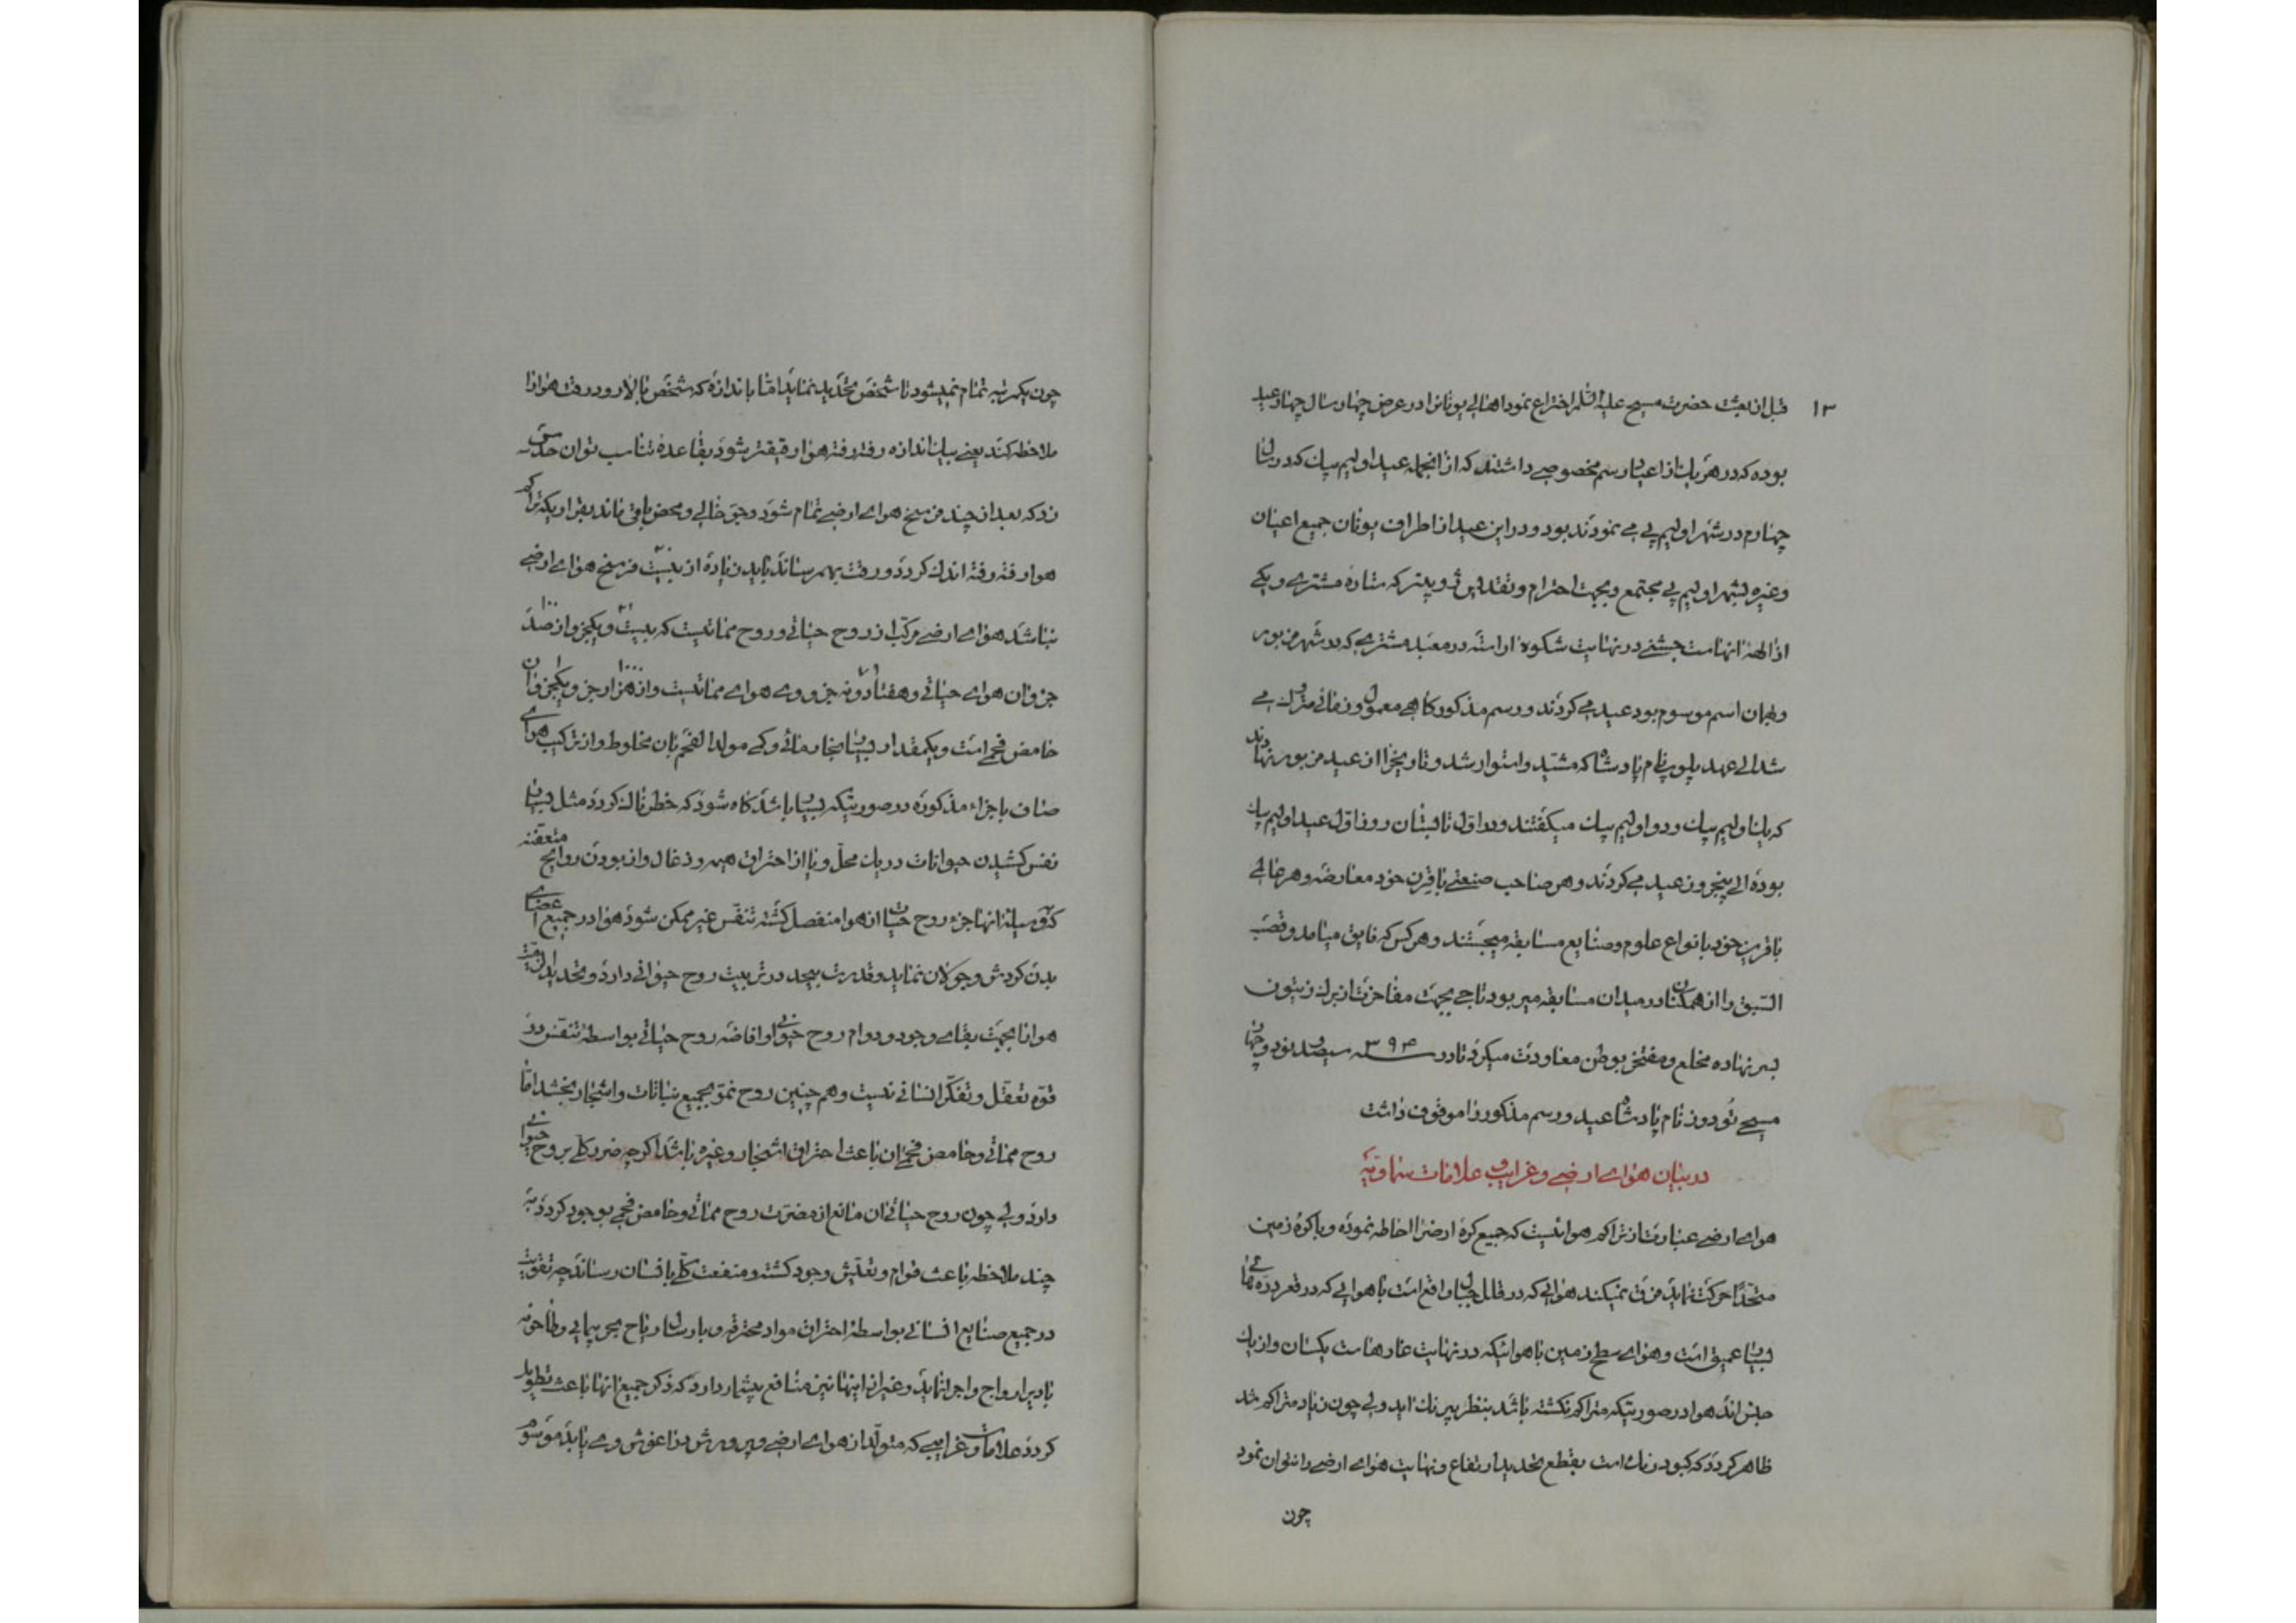 ۱۳
قبل از بعثت حضرت مسیح علیه السلام اختراع نمود اهالی یونانرا در عرض چهار سال چهار عید
بوده که در هر یك از اعیاد رسم مخصوصی داشتند که از انجمله عید اولیم پیك که در سال
چهارم در شهر اولیم پی می نمودند بود و در این عید از اطراف یونان جمیع اعیان
وغیره بشهر اولیم پی مجتمع و بجهت احترام و تقدیس ژوپیتر که ستاره مشتری و یکی
از الهۀ انهاست جشنی در نهایت شکوه اراسته در معبد مشتری که در شهر مزبور
وبهمان اسم موسوم بود عید می کردند و رسم مذکور کاهی معمول و زمانی متروك می
شد الی عهد نام پادشاه که مشید و استوار شد و تاریخرا از عید مزبور نهادند
که یك اولیم پیك و دو اولیم پیك میکفتند و در اول تابستان روز اول عید اولیم پیك
بوده الی پنجروز عید می کردند و هر صاحب صنعتی با قرن خود معارضه و هر عالمی
با قرین خود بانواع علوم و صنایع مسابقه میجستند و هر کس که فایق میامد و قصب
السبق را از همکنان در میدان مسابقه میربود تاجی بجهت مفاخرت از برك زیتون
بسر نهاده مخلع و مفتخر بوطن معاودت میکرد تا در سنه ۳۹۴ سیصد و نود و چهار
مسیحی تودوز نام پادشاه عید و رسم مذکور را موقوف داشت
در بیان هوای ارضی و غرایب و علامات سماویه
هوای ارضی عبارت از تراکم هوائیست که جمیع کره ارضرا احاطه نموده و با کره زمین
متحداً حرکت نماید فرق نمیکند هوائی که در قلل جبال واقع است با هوایی که در قعر دره های
بسیار عمیق است و هوای سطح زمین با هوائیکه در نهایت غارهاست یکسان و از یك
جنس اند هوا در صورتیکه متراکم نکشته باشد بنظر بیرنك اید ولی چون زیاد متراکم شد
ظاهر کردد که کبود رنك است بقطع تحدید ارتفاع و نهایت هوای ارضی را نتوان نمود
چون
چون یکمرتبه تمام نمیشود تا شخص تحدید نماید اما باندازه که شخص بالا رود رقت هوا را
ملاحظه کند یعنی بیك اندازه رفته رفته هوا رقیقتر شود بقاعدۀ تناسب توان حدس
زد که بعد از چند فرسخ هوای ارضی تمام شود و جو خالی و محض باقی ماند بقرار یکه تراکم
هوا رفته رفته اندك کردد و رقت بهم رساند باید زیاده از بیست فرسخ هوای ارضی
نباشد هوای ارضی مرکب از روح حیاتی و روح مماتیست که بیست و یکجزو از صد
جزو ان هوای حیاتی و هفتاد و نه جزو وی هوای مماتیست و از هزار جزو یکجزو ان
حامض فحمی است و یکمقدار بسیار بخار مائی و کمی مولد الفحم بان مخلوط و از ترکیب هوای
صاف باجزاء مذکوره در صورتیکه بسیار باشد کاه شود که خطرناك کردد مثل بسیار
نفس کشیدن حیوانات در یك محل و یا از احتراق هیمه و ذغال و از بودن روایح متعفنه
که وسیله انها جزء روح حیات از هوا منفصل کشته تنفس غیر ممکن شود هوا در جمیع اعضای
بدن کردش و جولان نماید و قدرت بیحد در تربیت روح حیوانی دارد و تحدید
هوا نا بجهت بقای وجود و دوام روح حیوانی و افاضه روح حیاتی بواسطۀ تنفس در
قوه تعقل و تفکر انسانی نیست و هم چنین روح نمو بجمیع نباتات و اشجار بخشد اما
روح مماتی و حامض فحمی ان باعث احتراق اشجار و غیره باشد اکرچه ضرر کلی بروح حیوانی
دارد ولی چون روح حیاتی ان مانع از مضرت روح مماتی و حامض فحمی موجود کردد به
چند ملاحظه باعث قوام و تعیش وجود کشته و منفعت کلی بانسان رساند چه تقویت
در جمیع صنایع انسانی بواسطۀ احتراق مواد محترقه و بارسال ریاح بحر پیمایی و طاحونه
بادیرا رواج و اجرا نماید و غیر از اینها نیز منافع بیشمار دارد که ذکر جمیع انها باعث تطویل
کردد علامات و غرایبی که متولد از هوای ارضی و پرورش در اغوش وی یابد موسوم